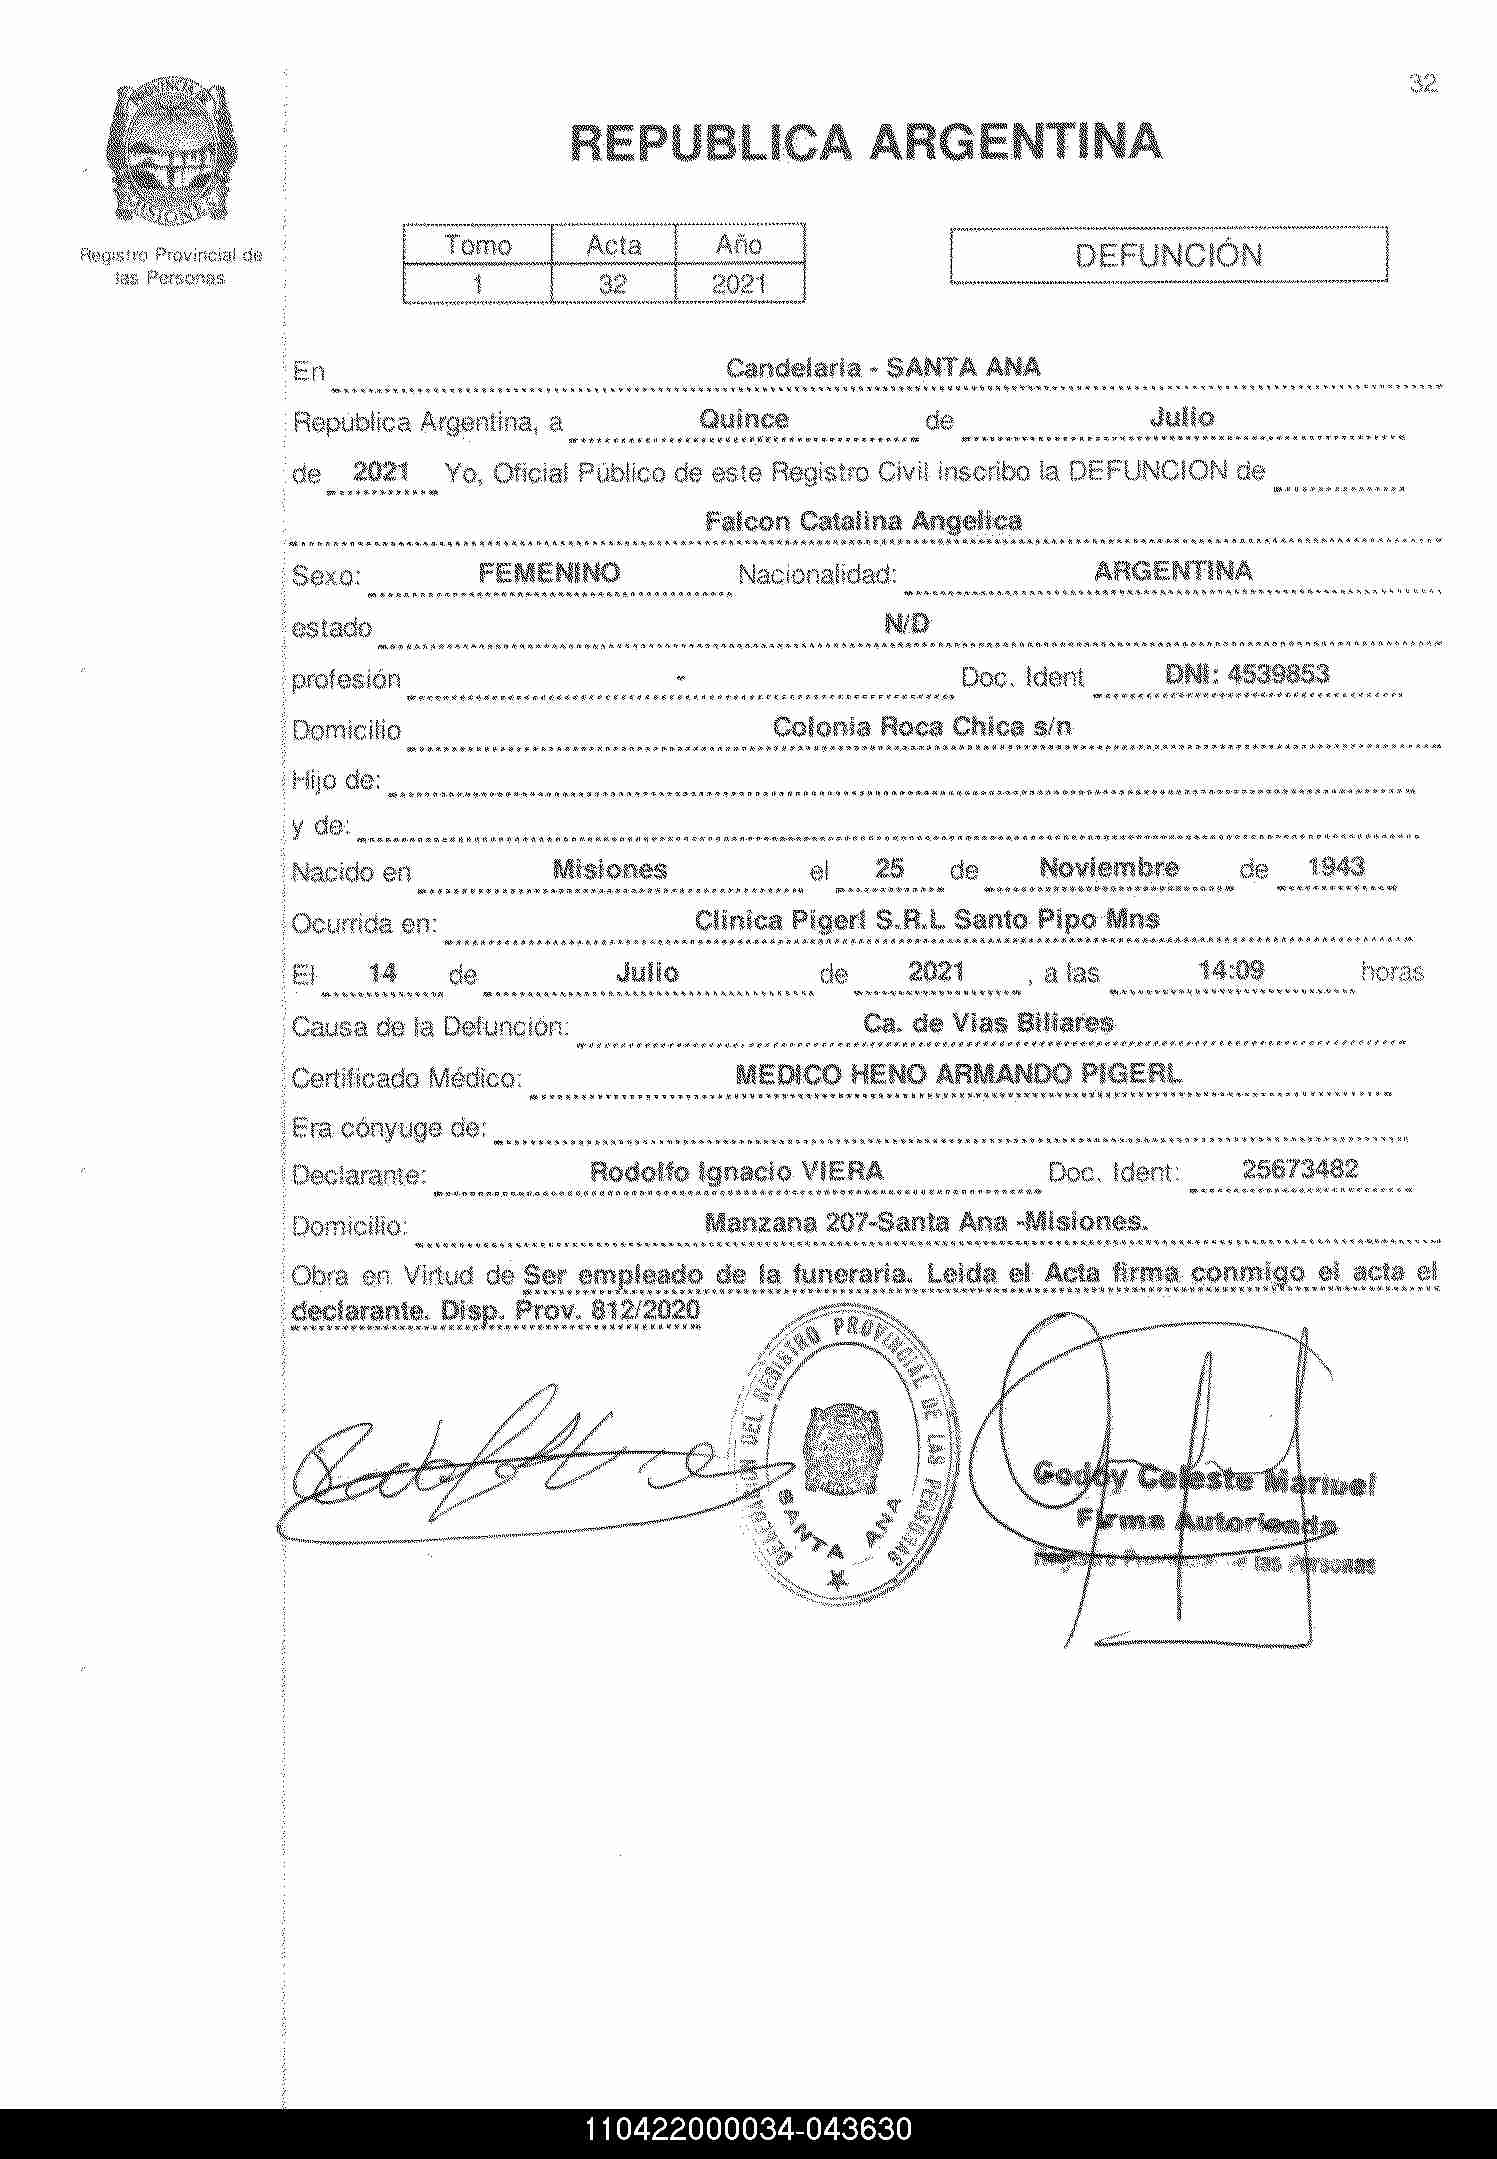 32
REPUBLICA ARGENTINA
Registro Provincial de
las Personas
Tomo Acta Año
1 32 2021
DEFUNCIÓN
En Candelaria - SANTA ANA
Republica Argentina, a Quince de Julio
de 2021 Yo, Oficial Público de este Registro Civil inscribo la DEFUNCION de
Falcon Catalina Angelica
Sexo: FEMENINO Nacionalidad: ARGENTINA
estado N/D
profesión - Doc. Ident DNI: 4539853
Domicilio Colonia Roca Chica s/n
Hijo de:
y de:
Nacido en Misiones el 25 de Noviembre de 1943
Ocurrida en: Clinica Pigerl S.R.L Santo Pipo Mns
El 14 de Julio de 2021 , a las 14:09 horas
Causa de la Defunción: Ca. de Vias Biliares
Certificado Médico: MEDICO HENO ARMANDO PIGERL
Era cónyuge de:
Declarante: Rodolfo Ignacio VIERA Doc. Ident: 25673482
Domicilio: Manzana 207-Santa Ana -Misiones.
Obra en Virtud de Ser empleado de la funeraria. Leida el Acta firma conmigo el acta el
declarante. Disp. Prov. 812/2020
DEL REGISTRO PROVINCIAL DE LAS PERSONAS
SANTA ANA
Godoy Celeste Maricel
Firma Autorizada
Registro Provincial de las Personas
110422000034-043630